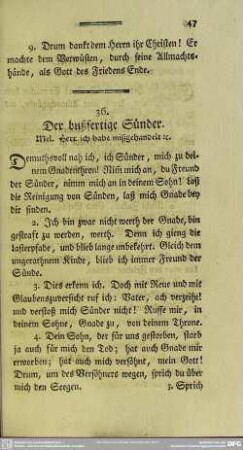 47
9. Drum dankt dem Herrn ihr Christen! Er
machte dem Verwüsten, durch seine Allmachts-
hände, als Gott des Friedens Ende.
36.
Der bußfertige Sünder.
Mel. Herr ich habe mißgehandelt ꝛc.
Demuthsvoll nah ich, ich Sünder, mich zu dei-
nem Gnadenthron! Nim̄ mich an, du Freund
der Sünder, nimm mich an in deinem Sohn! Laß
die Reinigung von Sünden, laß mich Gnade bey
dir finden.
2. Ich bin zwar nicht werth der Gnade, bin
gestraft zu werden, werth. Denn ich gieng die
Lasterpfade, und blieb lange unbekehrt. Gleich dem
ungerathnem Kinde, blieb ich immer Freund der
Sünde.
3. Dies erkenn ich. Doch mit Reue und mit
Glaubenszuversicht ruf ich: Vater, ach verzeihe!
und verstoß mich Sünder nicht! Ruffe mir, in
deinem Sohne, Gnade zu, von deinem Throne.
4. Dein Sohn, der für uns gestorben, starb
ja auch für mich den Tod; hat auch Gnade mir
erworben; hat auch mich versöhnt, mein Gott!
Drum, um des Versöhners wegen, sprich du über
mich den Seegen.
5. Sprich